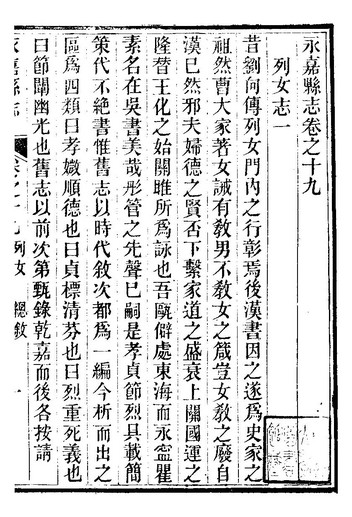 永嘉縣志卷之十九
列女志一
昔劉向傳列女門內之行彰焉後漢書因之遂爲史家之
祖然曹大家著女誡有敎男不敎女之箴豈女敎之廢自
漢巳然邪夫婦德之賢否下繫家道之盛衰上關國運之
隆替王化之始關雎所爲詠也吾甌僻處東海而永寍瞿
素名在吳書美哉彤管之先聲巳嗣是孝貞節烈具載簡
策代不絶書惟舊志以時代敘次都爲一編今析而出之
區爲四類曰孝媺順德也曰貞標清芬也曰烈重死義也
曰節闡幽光也舊志以前次第甄錄乾嘉而後各按請
永嘉縣志
卷之十九列女
總敘
一